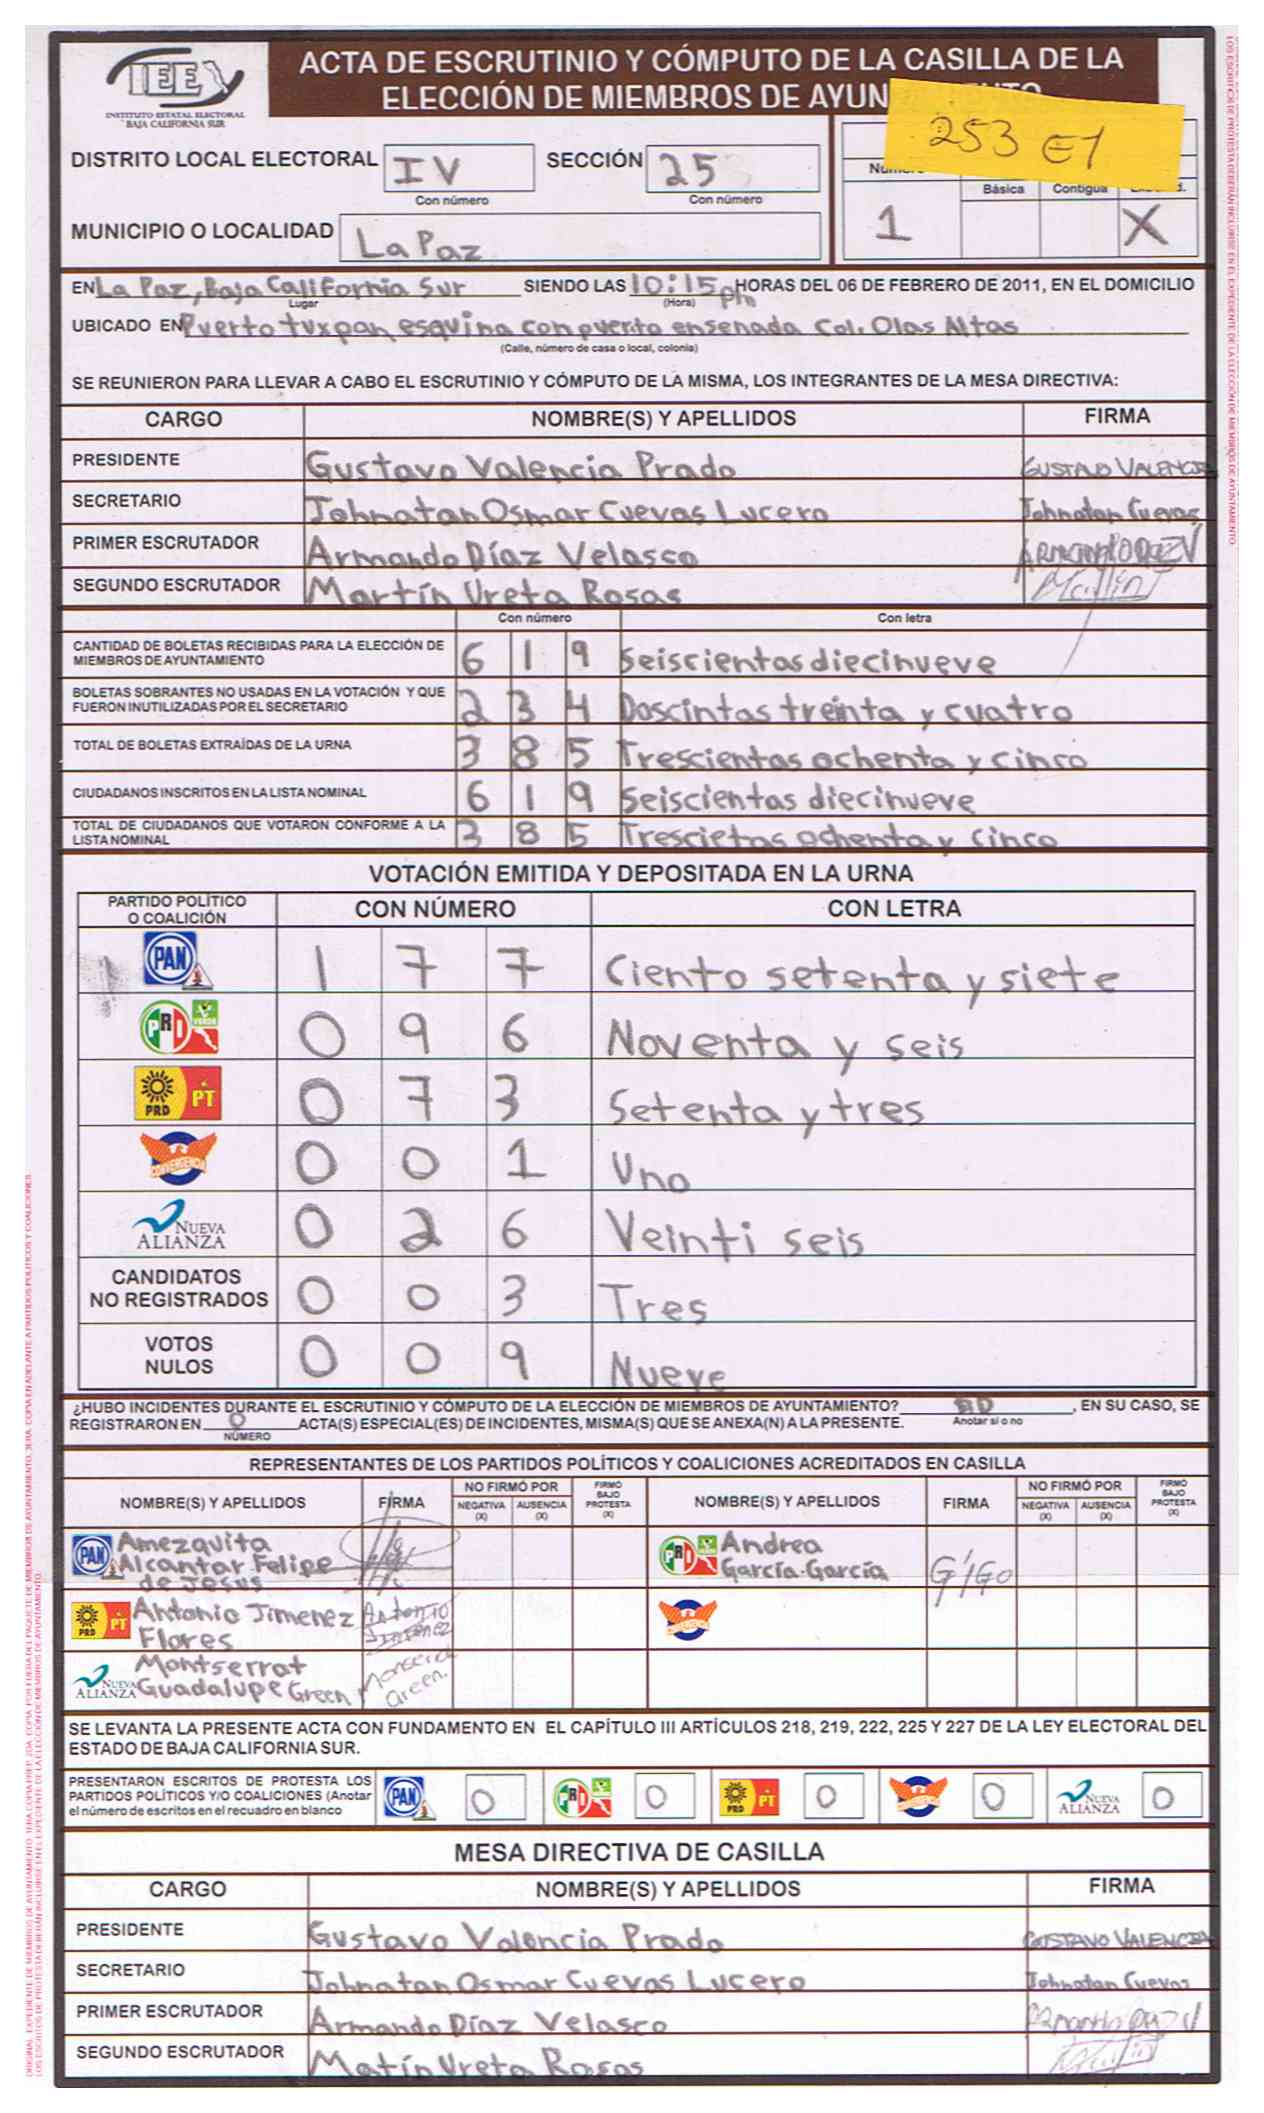 IEE
INSTITUTO ESTATAL ELECTORAL
BAJA CALIFORNIA SUR
ACTA DE ESCRUTINIO Y CÓMPUTO DE LA CASILLA DE LA
ELECCIÓN DE MIEMBROS DE AYUN
253 E1
DISTRITO LOCAL ELECTORAL IV SECCIÓN 253
Con número Con número
Básica Contigua
MUNICIPIO O LOCALIDAD La Paz
1 X
EN La Paz, Baja California Sur SIENDO LAS 10:15 pm HORAS DEL 06 DE FEBRERO DE 2011, EN EL DOMICILIO
Lugar (Hora)
UBICADO EN Puerto tuxpan esquina con puerto ensenada Col. Olas Altas
(Calle, número de casa o local, colonia)
SE REUNIERON PARA LLEVAR A CABO EL ESCRUTINIO Y CÓMPUTO DE LA MISMA, LOS INTEGRANTES DE LA MESA DIRECTIVA:
CARGO NOMBRE(S) Y APELLIDOS FIRMA
PRESIDENTE Gustavo Valencia Prado GUSTAVO VALENCIA
SECRETARIO Johnatan Osmar Cuevas Lucero Johnatan Cuevas
PRIMER ESCRUTADOR Armando Díaz Velasco
SEGUNDO ESCRUTADOR Martín Ureta Rosas
Con número Con letra
CANTIDAD DE BOLETAS RECIBIDAS PARA LA ELECCIÓN DE
MIEMBROS DE AYUNTAMIENTO 6 1 9 Seiscientos diecinueve
BOLETAS SOBRANTES NO USADAS EN LA VOTACIÓN Y QUE
FUERON INUTILIZADAS POR EL SECRETARIO 2 3 4 Doscintas treinta y cuatro
TOTAL DE BOLETAS EXTRAÍDAS DE LA URNA 3 8 5 Trescientas ochenta y cinco
CIUDADANOS INSCRITOS EN LA LISTA NOMINAL 6 1 9 Seiscientas diecinueve
TOTAL DE CIUDADANOS QUE VOTARON CONFORME A LA
LISTA NOMINAL 3 8 5 Trescietos ochenta y cinco
VOTACIÓN EMITIDA Y DEPOSITADA EN LA URNA
PARTIDO POLÍTICO
O COALICIÓN CON NÚMERO CON LETRA
PAN 1 7 7 Ciento setenta y siete
PRI VERDE 0 9 6 Noventa y seis
PRD PT 0 7 3 Setenta y tres
CONVERGENCIA 0 0 1 Uno
NUEVA ALIANZA 0 2 6 Veinti seis
CANDIDATOS
NO REGISTRADOS 0 0 3 Tres
VOTOS
NULOS 0 0 9 Nueve
¿HUBO INCIDENTES DURANTE EL ESCRUTINIO Y CÓMPUTO DE LA ELECCIÓN DE MIEMBROS DE AYUNTAMIENTO? no, EN SU CASO, SE
REGISTRARON EN 0 ACTA(S) ESPECIAL(ES) DE INCIDENTES, MISMA(S) QUE SE ANEXA(N) A LA PRESENTE. Anotar si o no
NÚMERO
REPRESENTANTES DE LOS PARTIDOS POLÍTICOS Y COALICIONES ACREDITADOS EN CASILLA
NOMBRE(S) Y APELLIDOS FIRMA NO FIRMÓ POR NEGATIVA (X) AUSENCIA (X) FIRMÓ BAJO PROTESTA (X) NOMBRE(S) Y APELLIDOS FIRMA NO FIRMÓ POR NEGATIVA (X) AUSENCIA (X) FIRMÓ BAJO PROTESTA (X)
PAN Amezquita
Alcantar Felipe
de Jesus
PRI VERDE Andrea
García García
PRD PT Antonio Jimenez
Flores Antonio Jimenez
CONVERGENCIA
NUEVA ALIANZA Montserrat
Guadalupe Green
SE LEVANTA LA PRESENTE ACTA CON FUNDAMENTO EN EL CAPÍTULO III ARTÍCULOS 218, 219, 222, 225 Y 227 DE LA LEY ELECTORAL DEL
ESTADO DE BAJA CALIFORNIA SUR.
PRESENTARON ESCRITOS DE PROTESTA LOS
PARTIDOS POLÍTICOS Y/O COALICIONES (Anotar
el número de escritos en el recuadro en blanco
PAN 0 PRI VERDE 0 PRD PT 0 CONVERGENCIA 0 NUEVA ALIANZA 0
MESA DIRECTIVA DE CASILLA
CARGO NOMBRE(S) Y APELLIDOS FIRMA
PRESIDENTE Gustavo Valencia Prado GUSTAVO VALENCIA
SECRETARIO Johnatan Osmar Cuevas Lucero Johnatan Cuevas
PRIMER ESCRUTADOR Armando Díaz Velasco
SEGUNDO ESCRUTADOR Matín Ureta Rosas
LOS ESCRITOS DE PROTESTA DEBERÁN INCLUIRSE EN EL EXPEDIENTE DE LA ELECCIÓN DE MIEMBROS DE AYUNTAMIENTO.